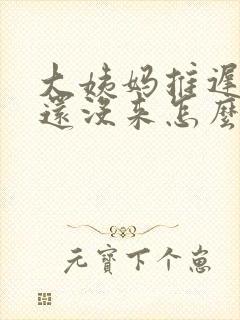 大姨妈推迟
還没来怎麼
元寶下个崽